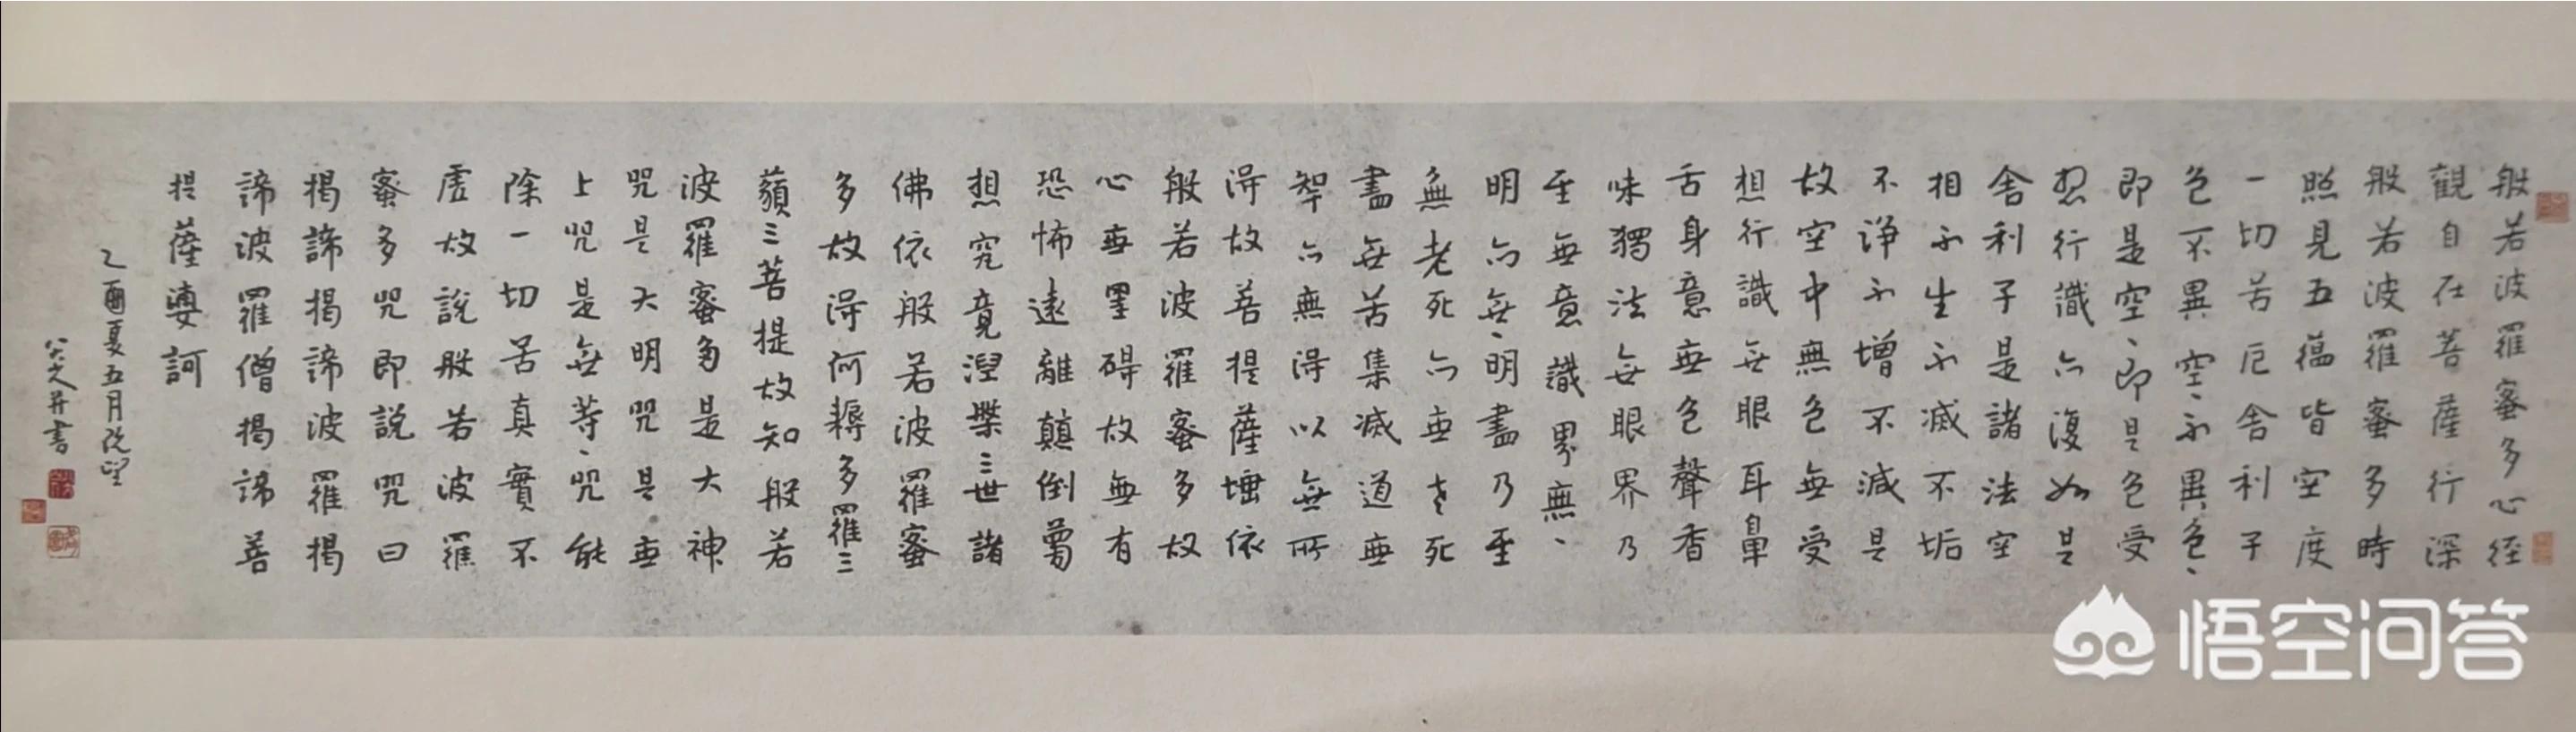 般若波羅蜜多心經
觀自在菩薩行深
般若波羅蜜多時
照見五蕴皆空度
一切苦厄舍利子
色不異空、不異色、
即是空、即是色受
想行識亦復如是
舍利子是諸法空
相不生不滅不垢
不淨不增不減是
故空中無色無受
想行識無眼耳鼻
舌身意無色聲香
味獨法無眼界乃
至無意識界無、
明亦無、明盡乃至
無老死亦無老死
盡無苦集滅道無
智亦無得以無所
得故菩提薩埵依
般若波羅蜜多故
心無罣碍故無有
恐怖遠離顛倒夢
想究竟涅槃三世諸
佛依般若波羅蜜
多故得阿耨多羅三
藐三菩提故知般若
波羅蜜多是大神
咒是大明咒是無
上咒是無等、咒能
除一切苦真實不
虛故説般若波羅
蜜多咒即説咒曰
揭諦揭諦波羅揭
諦波羅僧揭諦菩
提薩婆訶
乙酉夏五月既望
八大人并書
悟空问答